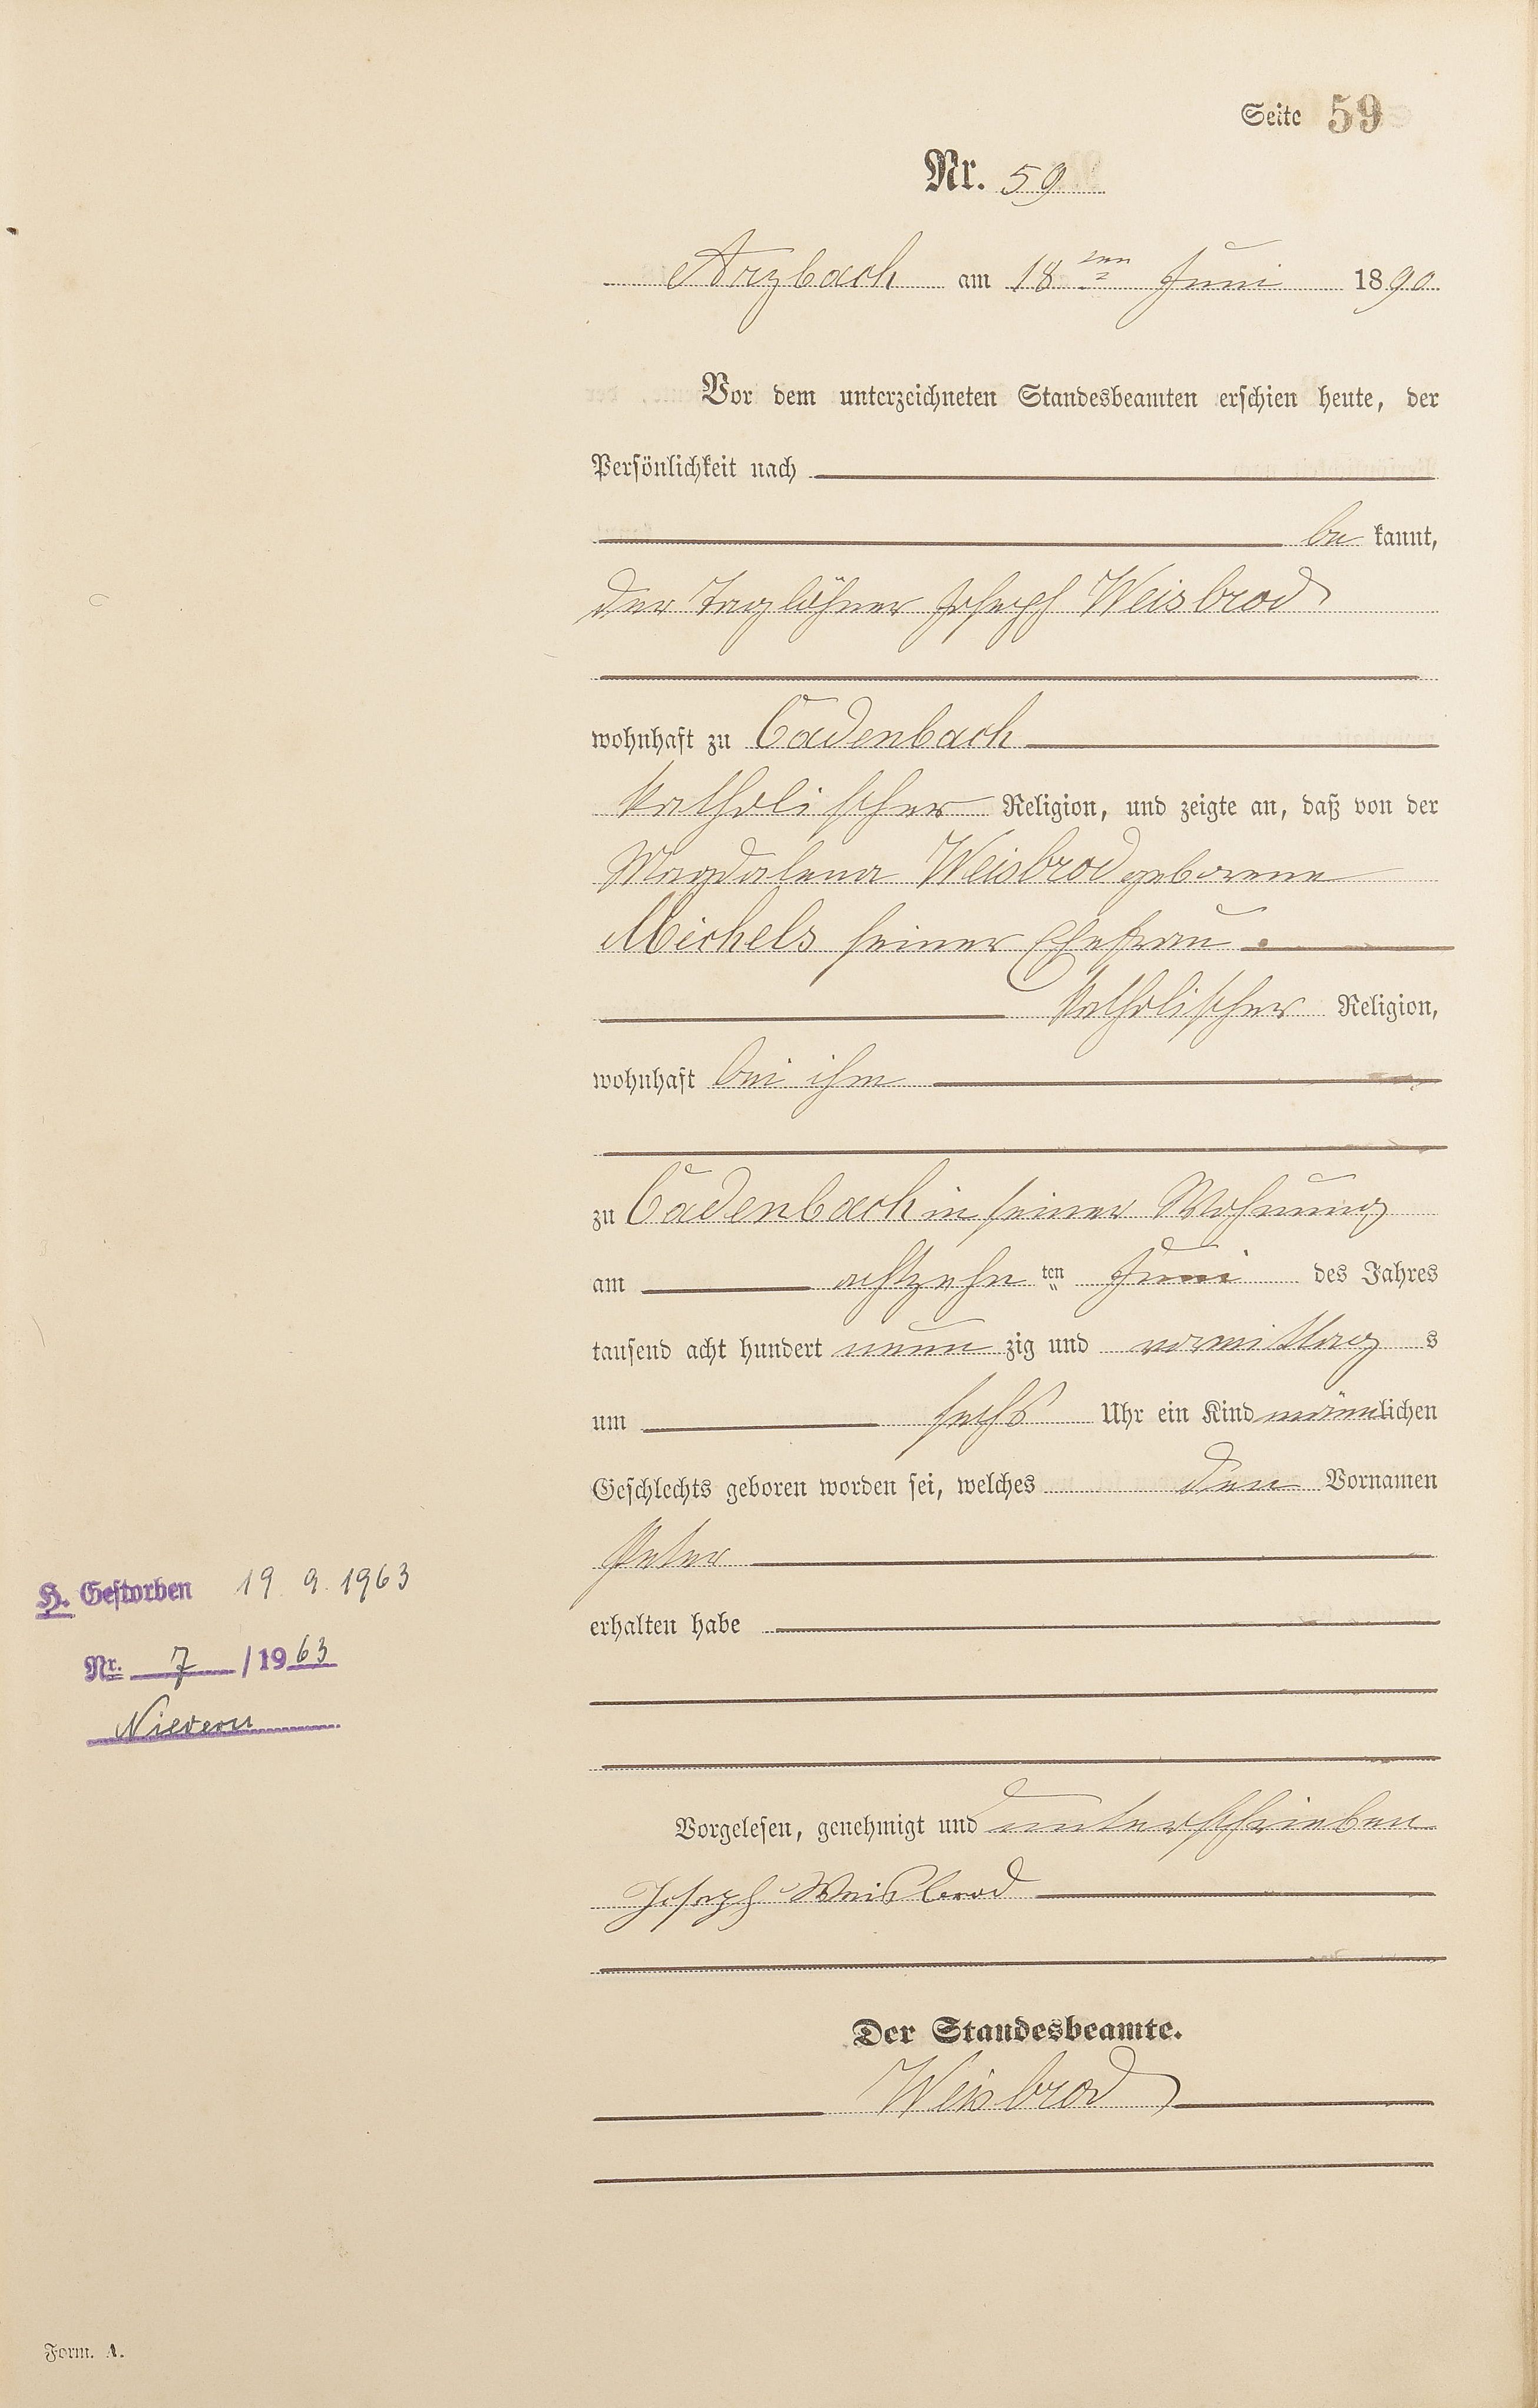 Seite 59
Nr. 59
Arzbach am 18ten Juni 1890
Vor dem unterzeichneten Standesbeamten erschien heute, der
Persönlichkeit nach
be kannt,
der Taglöhner Joseph Weisbrod
wohnhaft zu Cadenbach
katholischer Religion, und zeigte an, daß von der
Magdalena Weisbrod geborene
Michels seiner Ehefrau.
katholischer Religion,
wohnhaft bei ihm
zu Cadenbach in seiner Wohnung
am achtzehn ten Juni des Jahres
tausend acht hundert neun zig und vormittag s
um sechs Uhr ein Kind männlichen
Geschlechts geboren worden sei, welches den Vornamen
Peter
erhalten habe
H. Gestorben 19.9.1963
Nr. 7 / 1963
Nievern
Vorgelesen, genehmigt und unterschrieben
Joseph Weisbrod
Der Standesbeamte.
Weisbrod
Form. A.